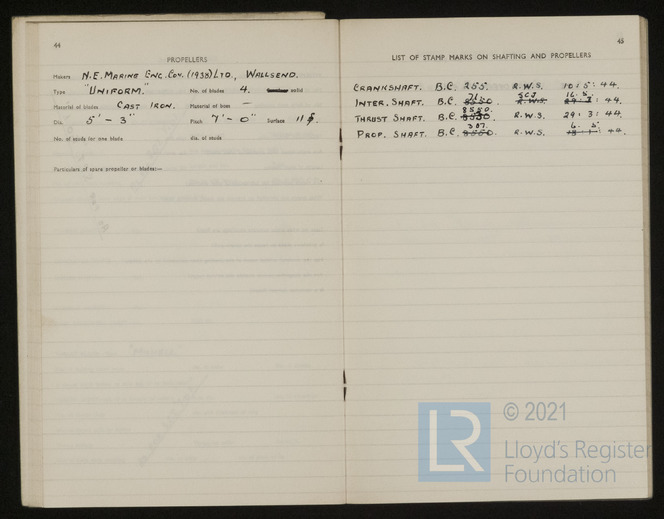 44
PROPELLERS
Makers N.E. MARINE ENG. COY. (1938) LTD., WALLSEND.
Type "UNIFORM." No. of blades 4. solid
Material of blades CAST IRON. Material of boss —
Dia. 5' - 3" Pitch 7' - 0" Surface 11
No. of studs for one blade dia. of studs
Particulars of spare propeller or blades:—
45
LIST OF STAMP MARKS ON SHAFTING AND PROPELLERS
CRANKSHAFT. B.C. 255. R.W.S. 10 : 5 : 44.
71 SCJ 16. 5.
INTER. SHAFT. B.C. 8550. R.W.S. 29 : 3 : 44.
8550.
THRUST SHAFT. B.C. R.W.S. 29 : 3 : 44.
307. 6. 5.
PROP. SHAFT. B.C. 8550. R.W.S. 44.
LR © 2021
Lloyd's Register
Foundation